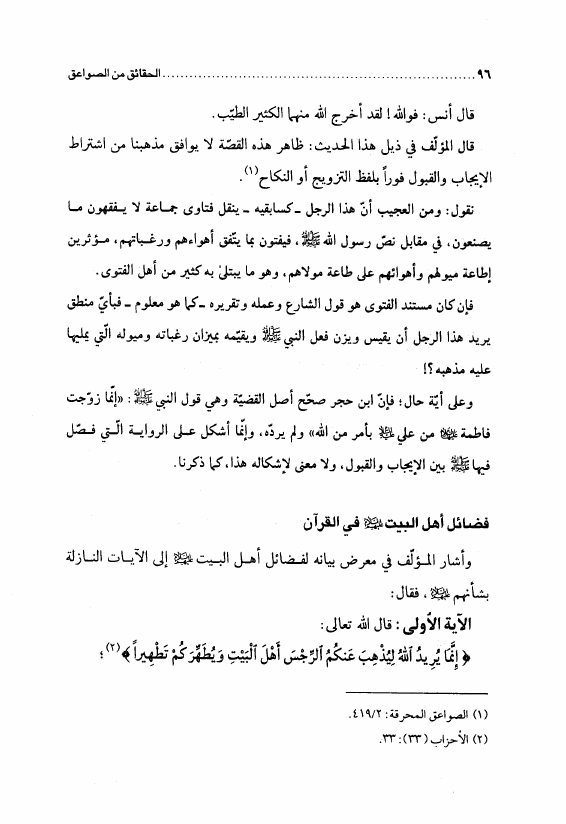 ٩٦ ........................................................................ الحقائق من الصواعق
قال أنس: فوالله! لقد أخرج الله منهما الكثير الطيّب.
قال المؤلّف في ذيل هذا الحديث: ظاهر هذه القصّة لا يوافق مذهبنا من اشتراط
الإيجاب والقبول فوراً بلفظ التزويج أو النكاح(١).
نقول: ومن العجيب أنّ هذا الرجل ـ كسابقيه ـ ينقل فتاوى جماعة لا يفقهون ما
يصنعون، في مقابل نصّ رسول الله ﷺ، فيفتون بما يتّفق أهواءهم ورغباتهم، مؤثرين
إطاعة ميولهم وأهوائهم على طاعة مولاهم، وهو ما يبتلىٰ به كثير من أهل الفتوى.
فإن كان مستند الفتوى هو قول الشارع وعمله وتقريره ـ كما هو معلوم ـ فبأيّ منطق
يريد هذا الرجل أن يقيس ويزن فعل النبي ﷺ ويقيّمه بميزان رغباته وميوله الّتي يمليها
عليه مذهبه؟!
وعلى أيّة حال؛ فإنّ ابن حجر صحّح أصل القضيّة وهي قول النبي ﷺ: «إنّما زوّجت
فاطمة من علي بأمر من الله» ولم يردّه، وإنّما أشكل على الرواية الّتي فصّل
فيها ﷺ بين الإيجاب والقبول، ولا معنى لإشكاله هذا، كما ذكرنا.
فضائل أهل البيت في القرآن
وأشار المؤلّف في معرض بيانه لفضائل أهل البيت إلى الآيات النازلة
بشأنهم ، فقال:
الآية الأولى: قال الله تعالى:
﴿ إِنَّمَا يُرِيدُ ٱللهُ لِيُذْهِبَ عَنكُمُ ٱلرِّجْسَ أَهْلَ ٱلْبَيْتِ وَيُطَهِّرَكُمْ تَطْهِيراً ﴾(٢)؛
(١) الصواعق المحرقة: ٤١٩/٢.
(٢) الأحزاب (٣٣): ٣٣.